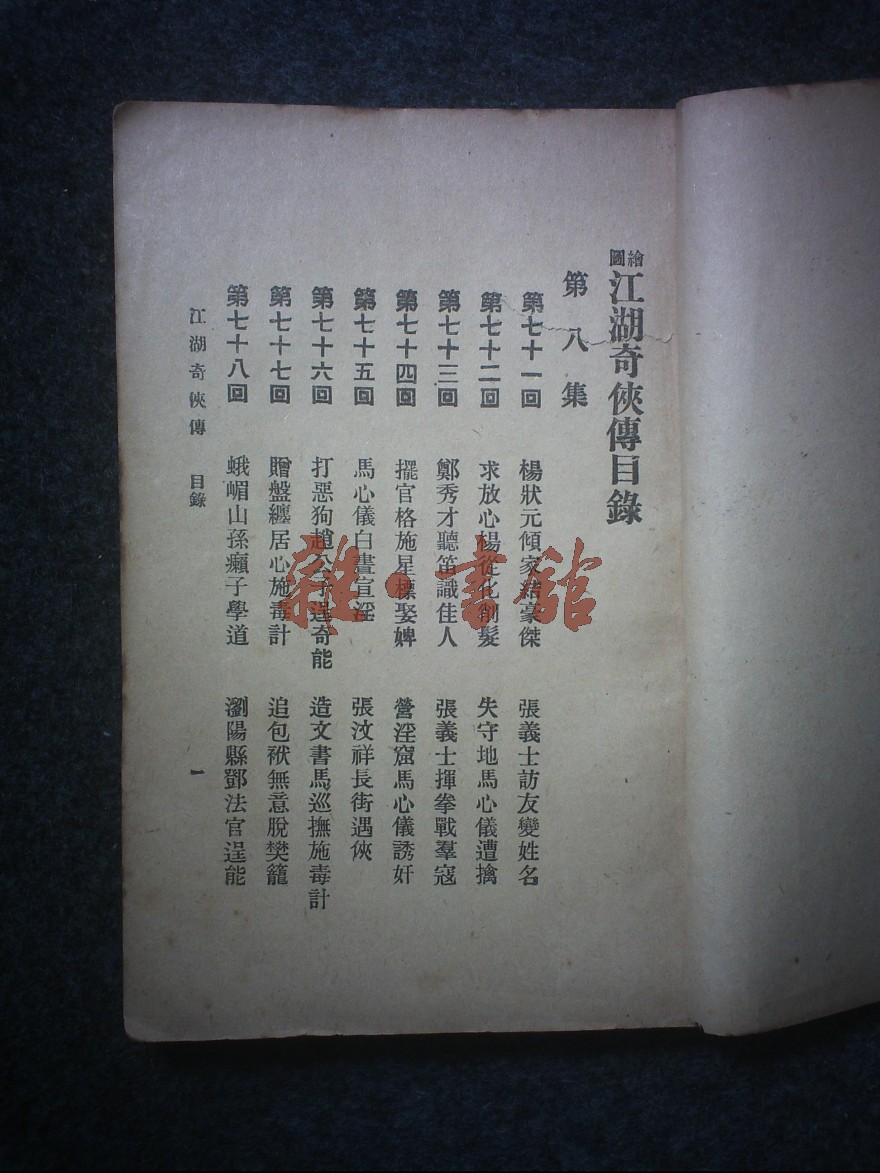 繪圖江湖奇俠傳目錄
第八集
第七十一回 楊狀元傾家結豪傑 張義士訪友變姓名
第七十二回 求放心楊從化削髮 失守地馬心儀遭擒
第七十三回 鄭秀才聽笛識佳人 張義士揮拳戰羣寇
第七十四回 擺官格施星標娶婢 營淫窟馬心儀誘奸
第七十五回 馬心儀白晝宣淫 張汶祥長街遇俠
第七十六回 打惡狗趙公子逞奇能 造文書馬巡撫施毒計
第七十七回 贈盤纏居心施毒計 追包袱無意脫樊籠
第七十八回 蛾嵋山孫癲子學道 瀏陽縣鄧法官逞能
江湖奇俠傳 目錄 一
雜·書館